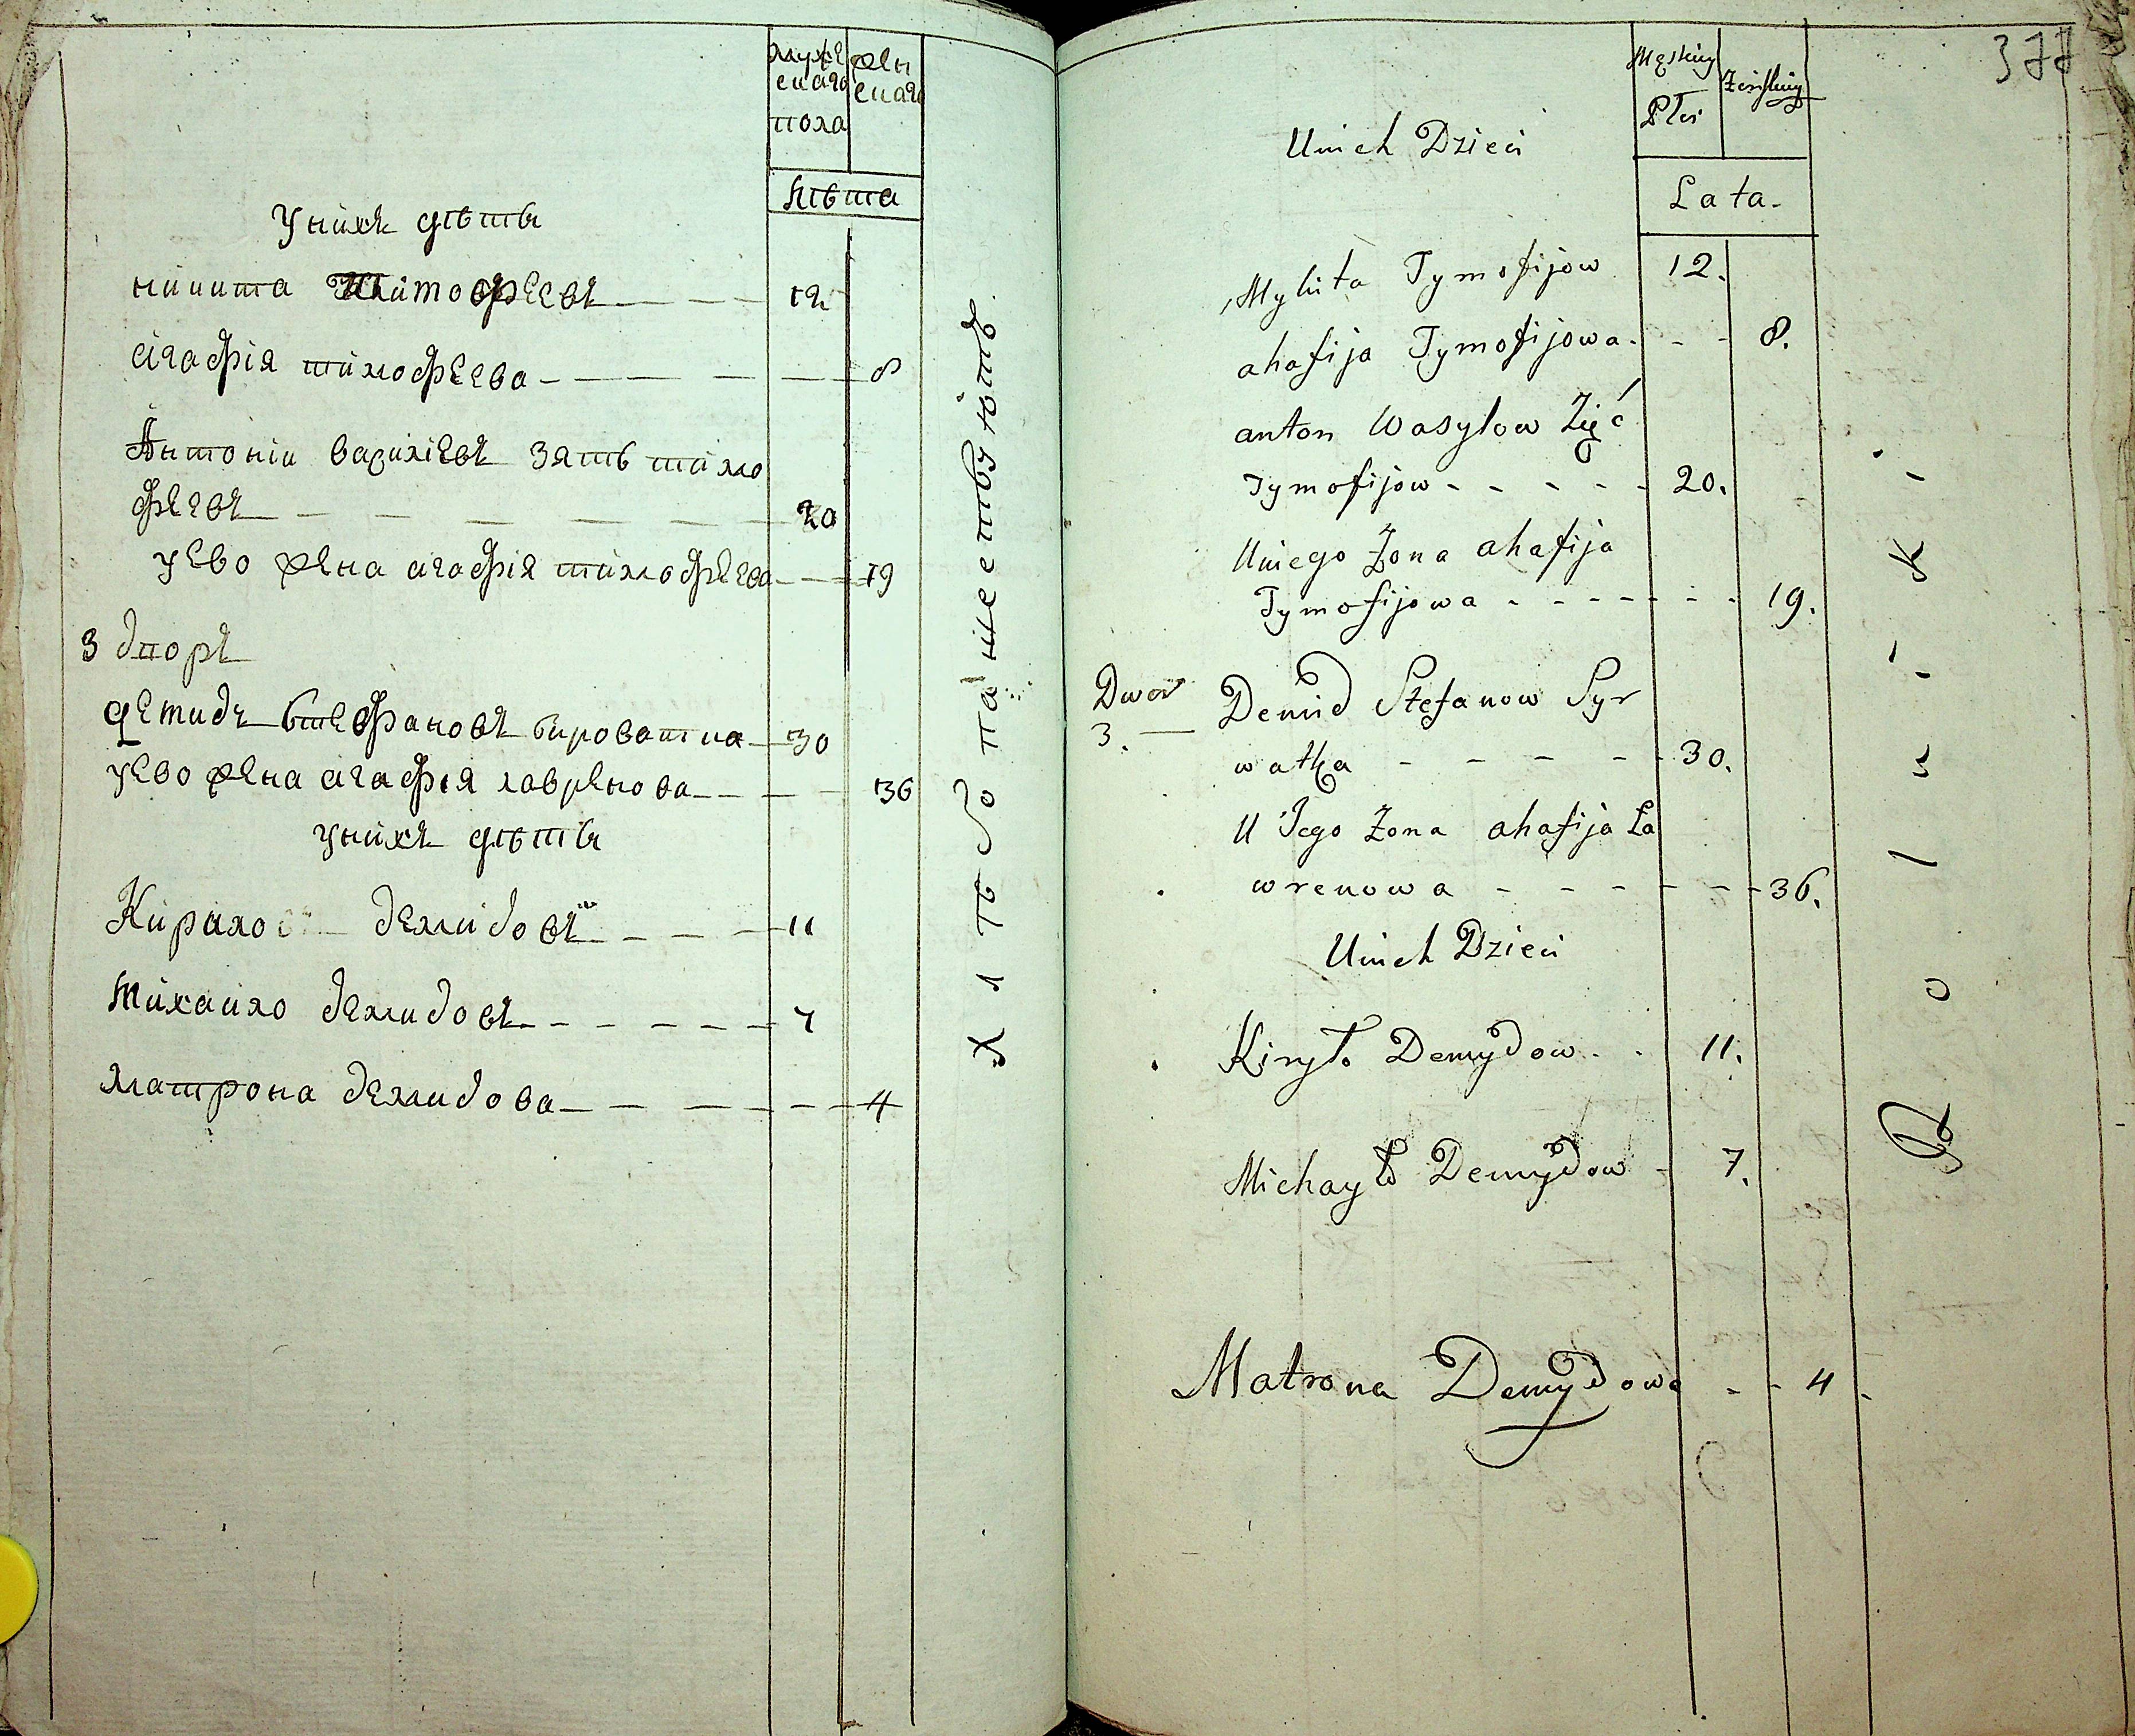 мужескаго
женскаго
пола
лѣта
у нихъ дѣти
никита тимофеевъ 12
агафія тимофеева 8
Антоній василіевъ зять тимо
феевъ 20
у ево жена агафія тимофеева 19
3 дворъ
демидъ стефановъ сироватка 30
у ево жена агафія лавренова 36
у нихъ дѣти
Кирило демидовъ 11
михайло демидовъ 7
матрона демидова 4
Хлѣбопашествуютъ
377
Męskiey
Żeńskiey
Płci
Lata.
U nich Dzieci
Mykita Tymofijow 12.
ahafija Tymofijowa 8.
anton Wasylow Zięć
Tymofijow 20.
U niego Żona ahafija
Tymofijowa 19.
Dwor
3.
Demid Stefanow Syr
watka 30.
U Jego Żona ahafija Ła
wrenowa 36.
U nich Dzieci
Kiryło Demydow 11.
Michayło Demydow 7.
Matrona Demydowa 4
Rolniki